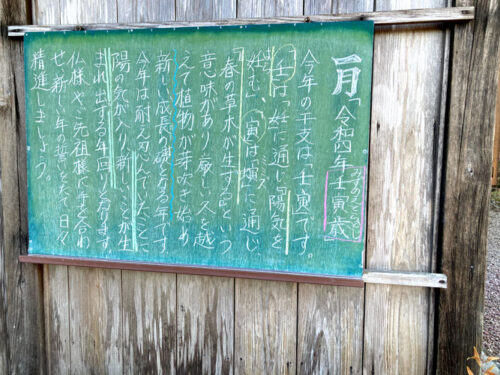 一月「令和四年壬寅歳」
みずのえとらどし
今年の干支は「壬寅」です。
「壬」は「妊」に通じ「陽気を
妊む」、「寅」は「螾」に通じ、
ミミズ
「春の草木が生ずる」という
意味があり、厳しい冬を越
えて植物が芽吹き始め
新しい成長の礎となる年です。
今年は耐え忍んでいたことに
陽の気が入り、新しいことが生
まれ出ずる年回りとなります。
仏様やご先祖様に手を合わ
せ新しい年の誓いをたて、日々
精進しましょう。